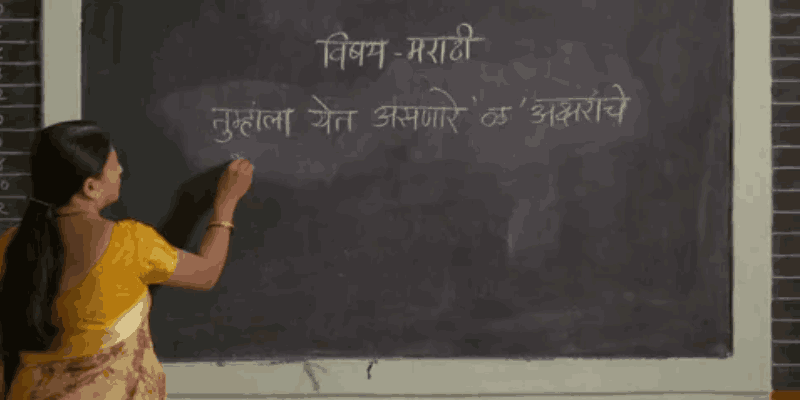 विषय - मराठी
तुम्हाला येत असणारे 'ळ' अक्षराचे